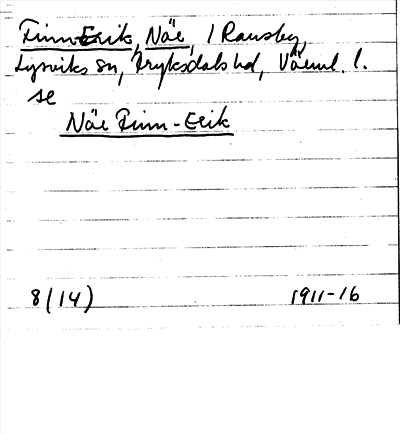 Finn-Erik, Näe, i Ransby,
Lysviks sn, Fryksdals hd, Värml. l.
se
Näe Finn-Erik
8(14) 1911-16